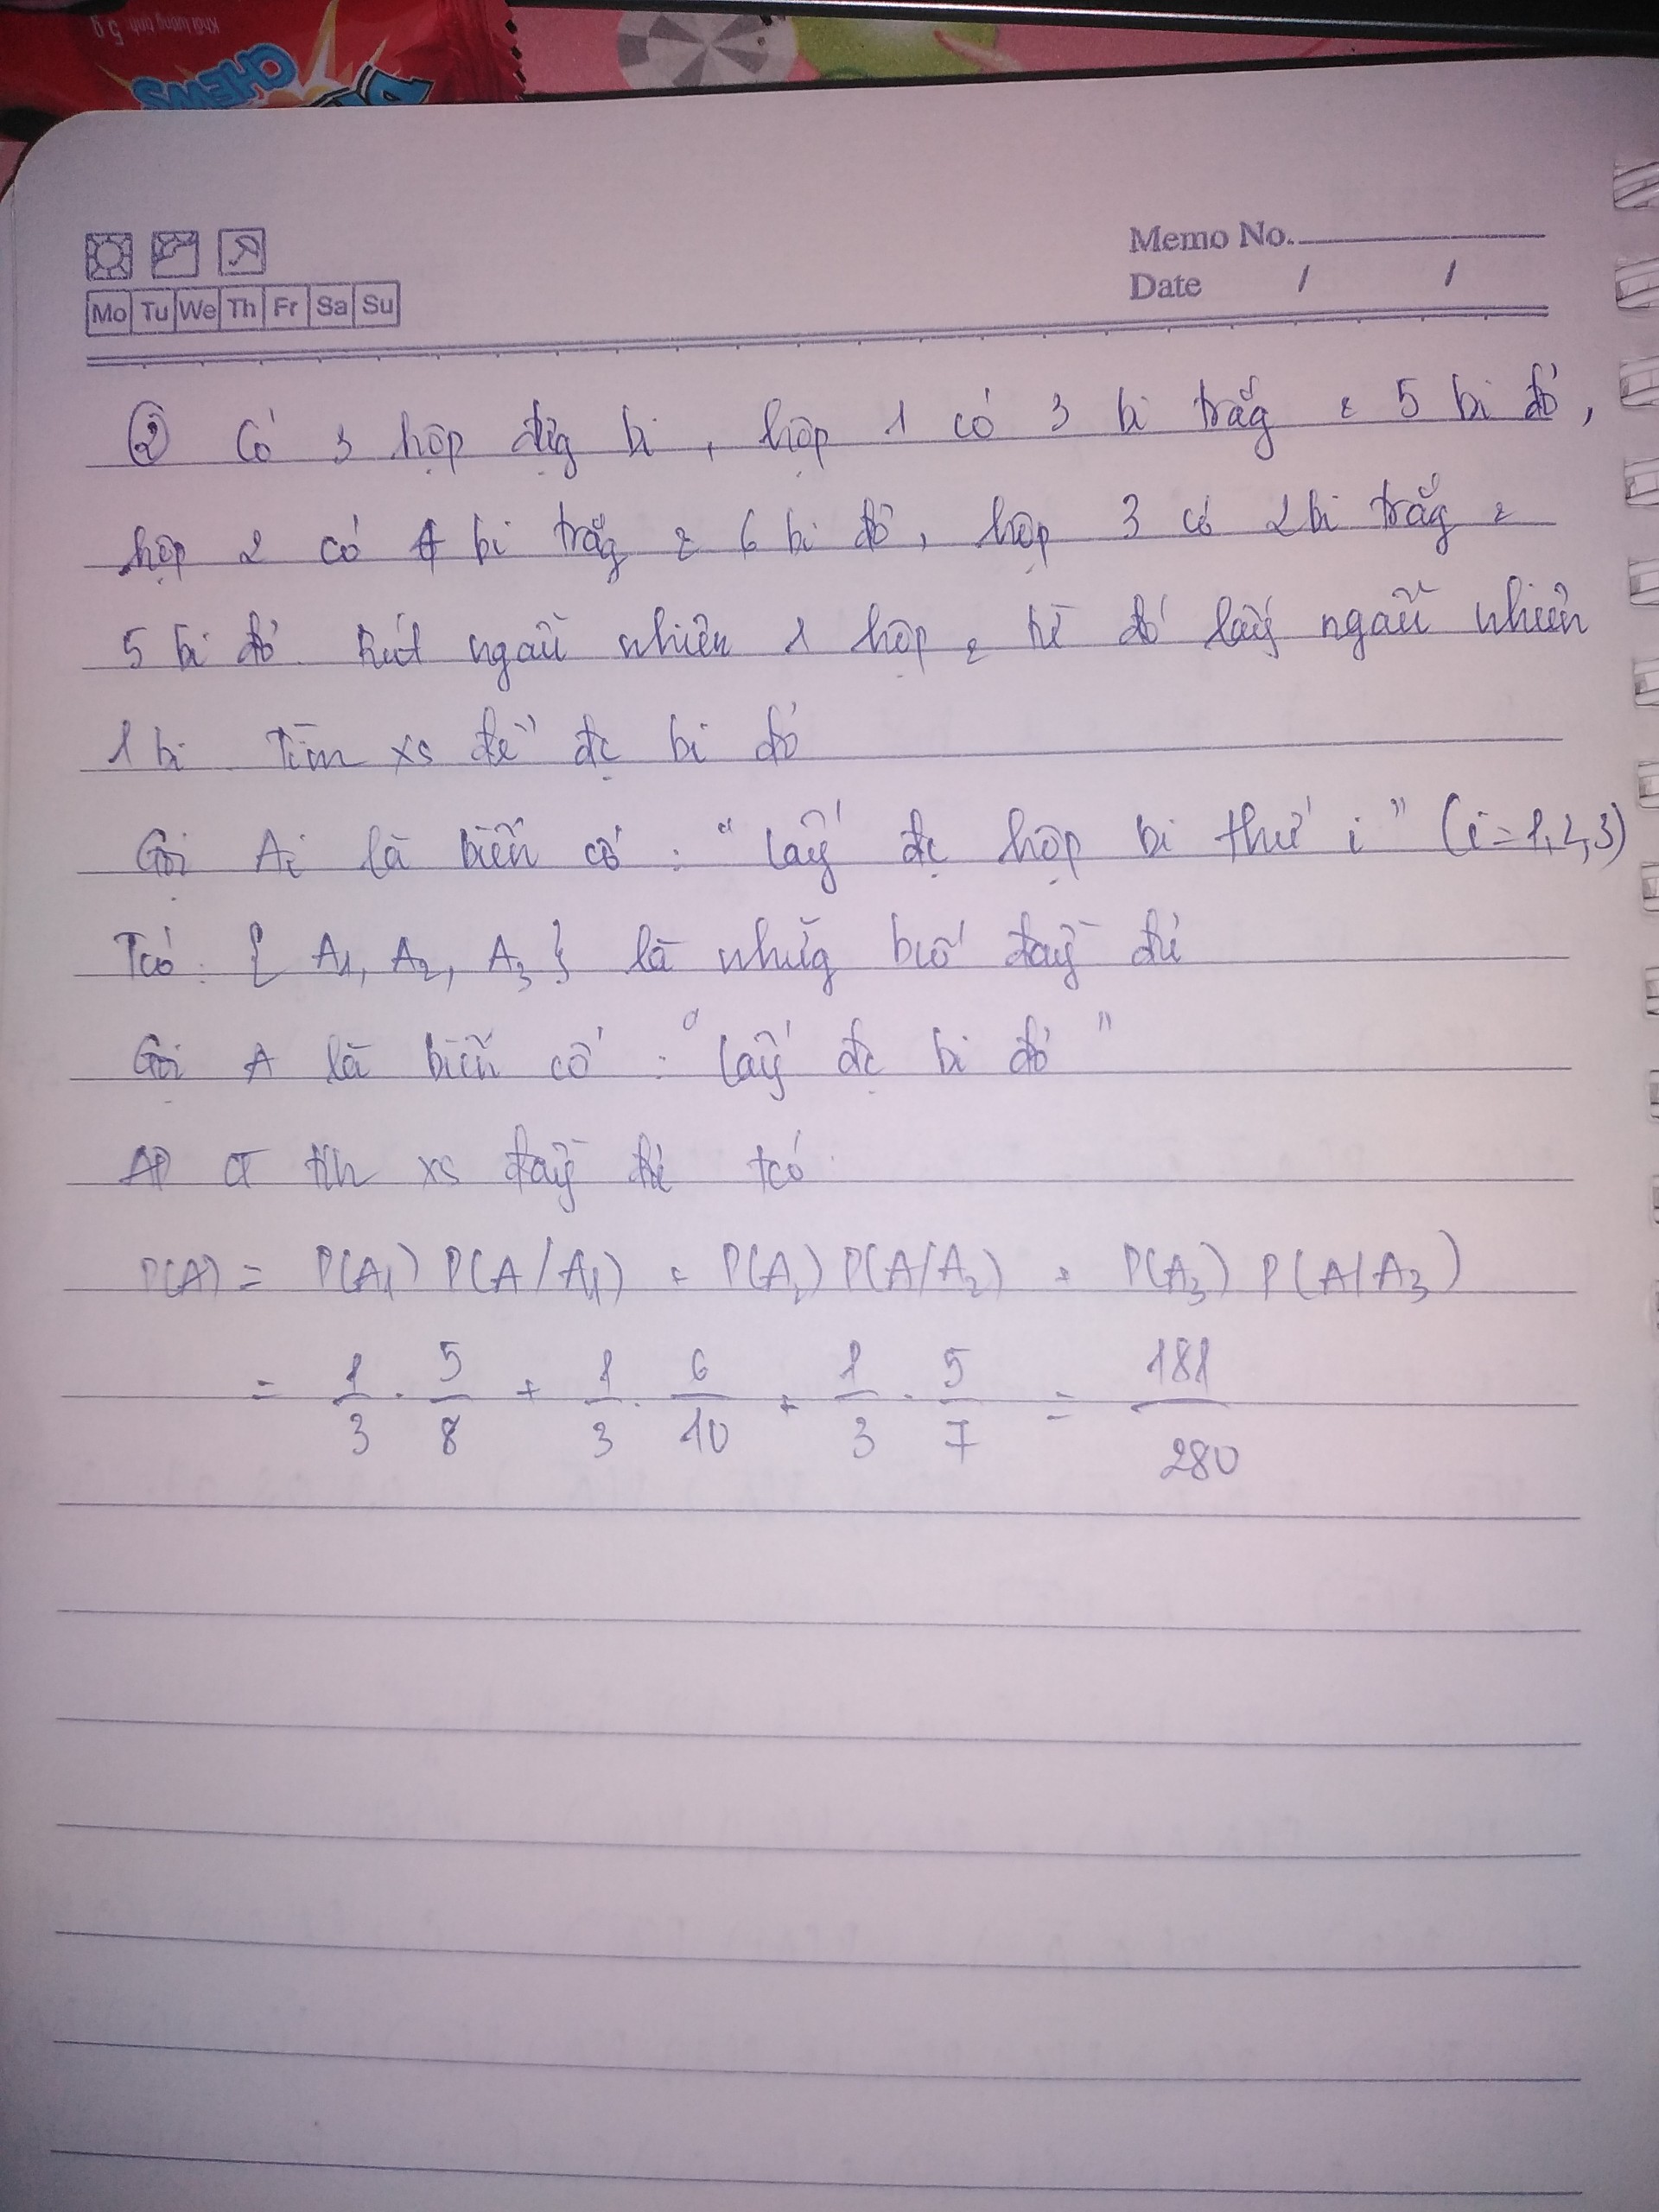 Khối lượng tịnh: 5 g
CHEWS
Memo No.
Date / /
Mo Tu We Th Fr Sa Su
② Có 3 hộp đựg bi, hộp 1 có 3 bi trắg & 5 bi đỏ,
hộp 2 có 4 bi trắg & 6 bi đỏ, hộp 3 có 2 bi trắg &
5 bi đỏ. Rút ngẫu nhiên 1 hộp & từ đó lấy ngẫu nhiên
1 bi. Tìm xs để đc bi đỏ
Gọi Ai là biến cố: "lấy đc hộp bi thứ i" (i=1,2,3)
Tcó: { A1, A2, A3 } là nhữg bcố đầy đủ
Gọi A là biến cố: "lấy đc bi đỏ"
AD CT tih xs đầy đủ tcó:
P(A) = P(A1) P(A/A1) + P(A2) P(A/A2) + P(A3) P(A/A3)
= 1/3 . 5/8 + 1/3 . 6/10 + 1/3 . 5/7 = 181/280